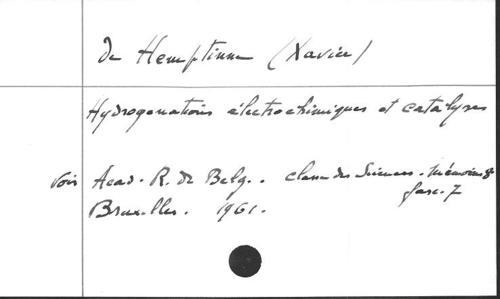 de Hemptinne (Xavier)
Hydrogénations électrochimiques et catalyses
Voir Acad. R. de Belg. Classe des Sciences. Mémoires 8°
fasc. 7
Bruxelles. 1961.